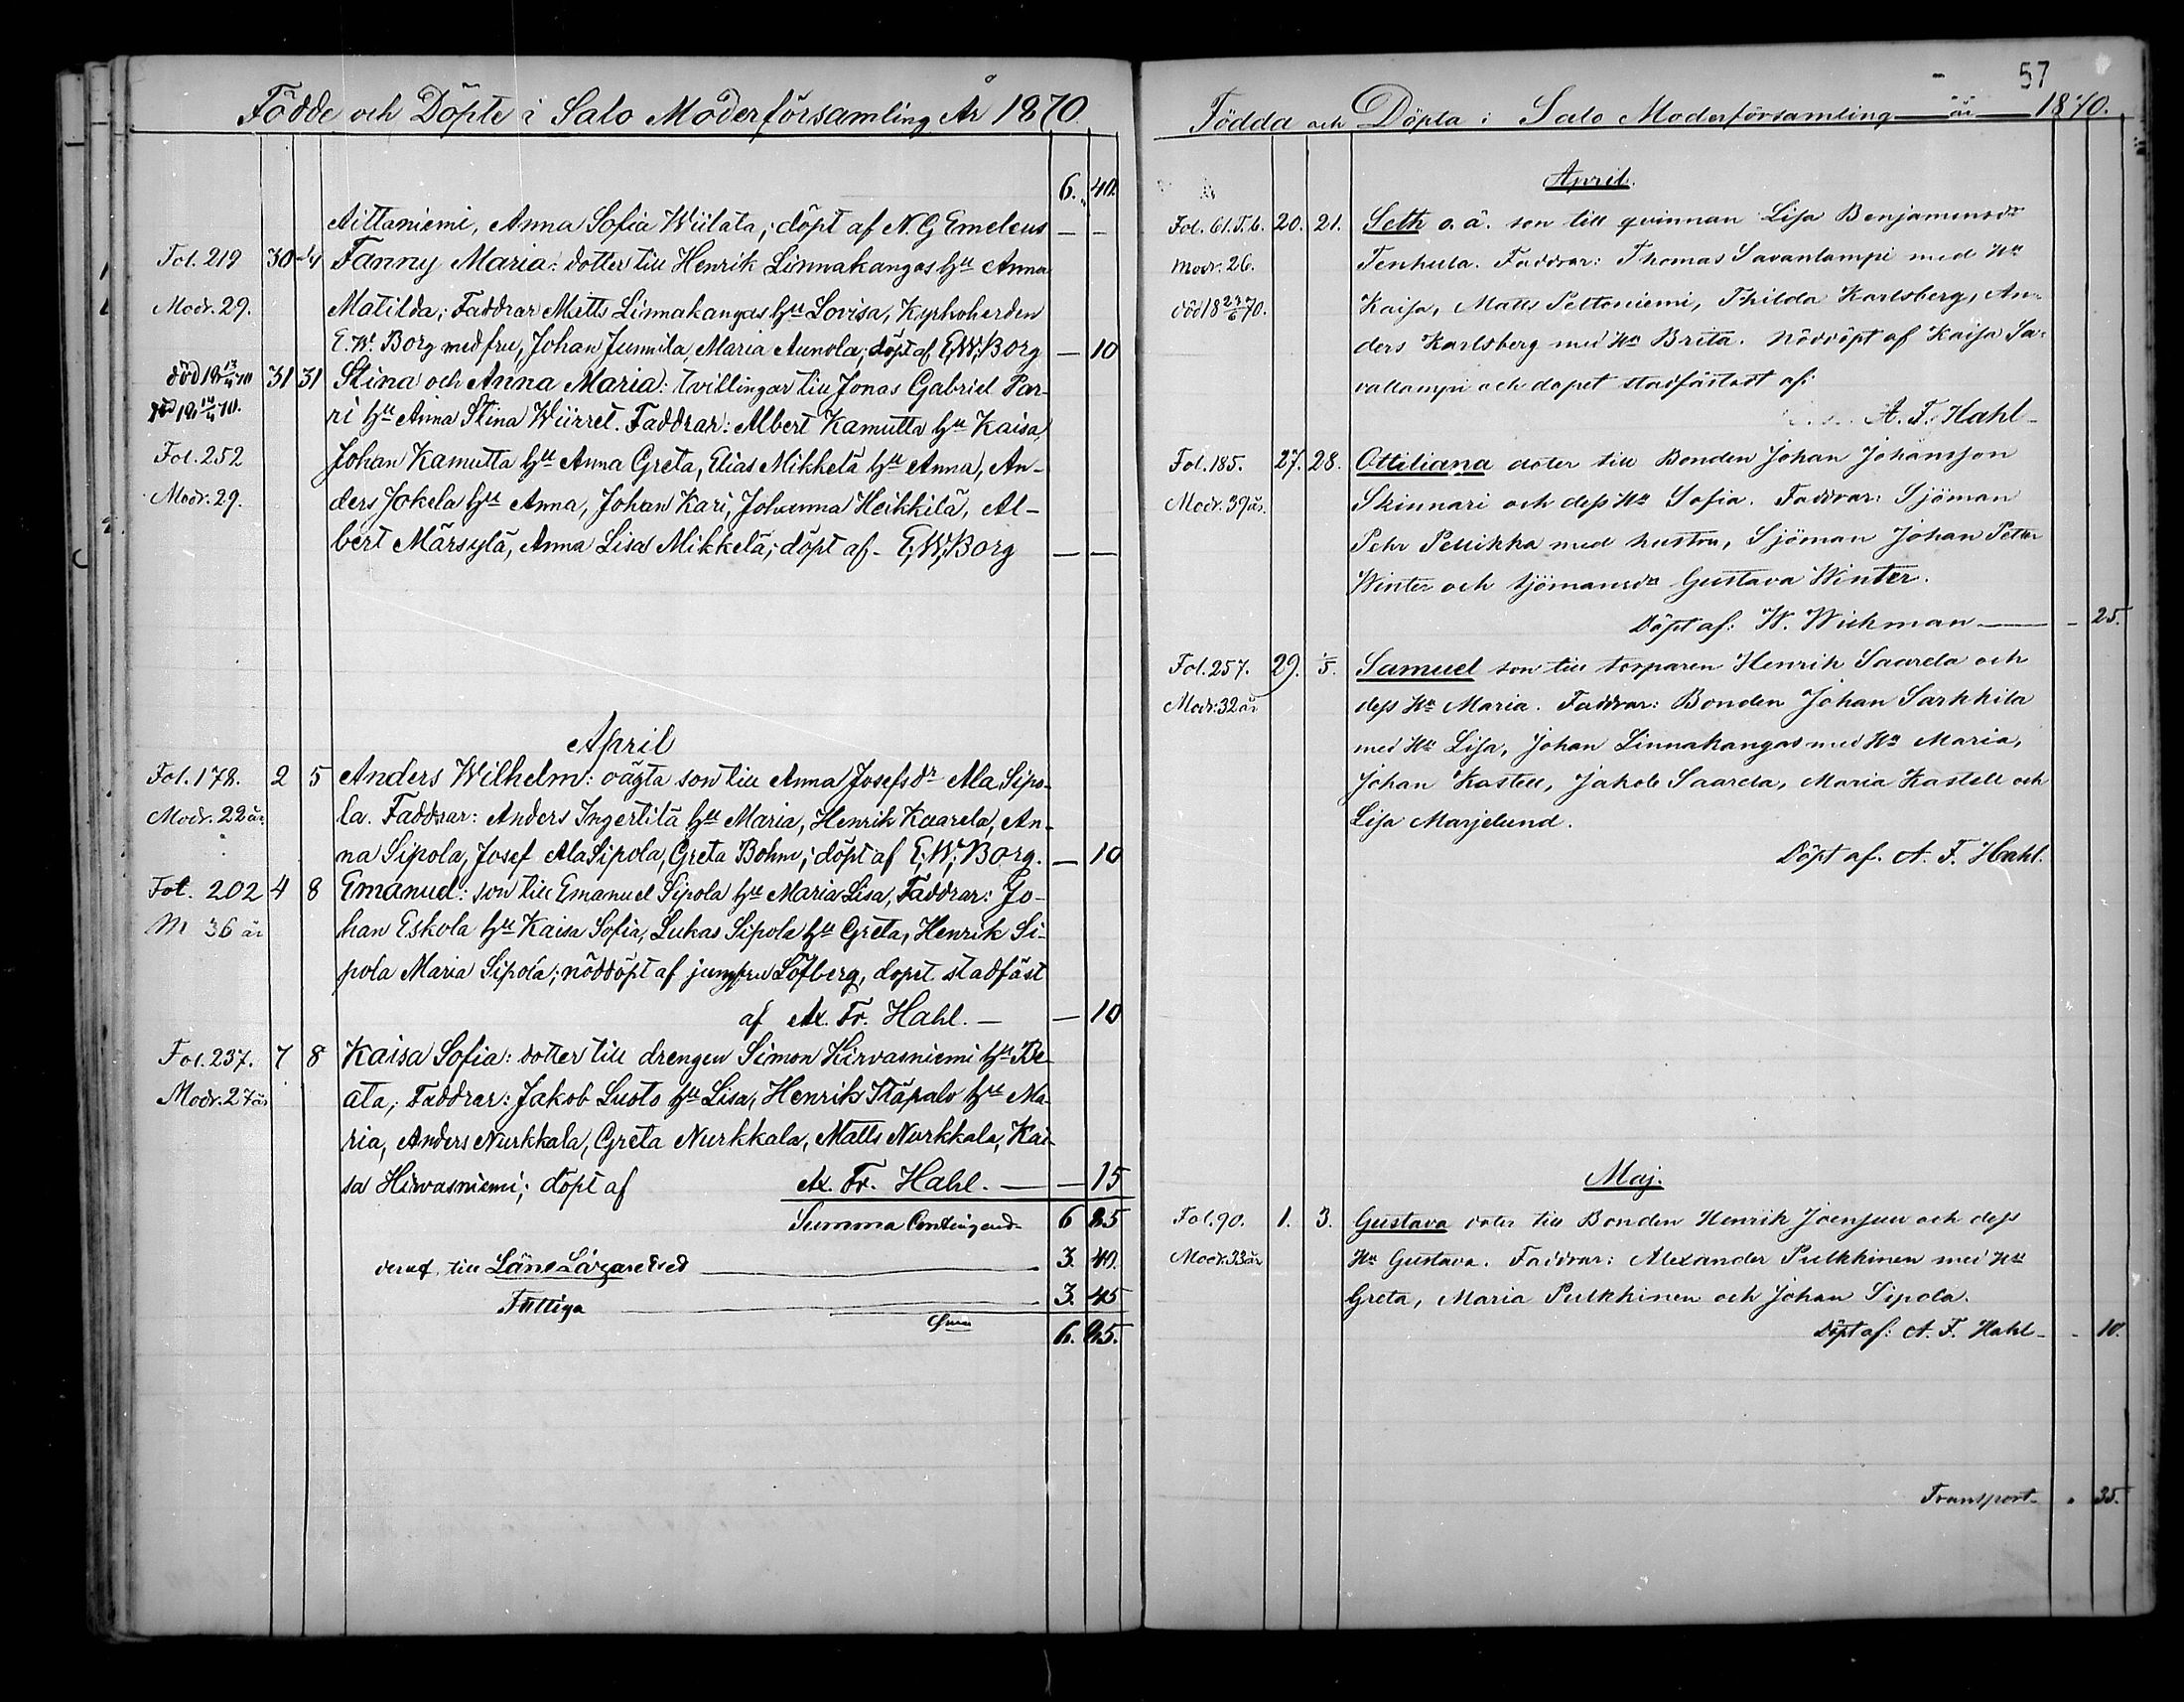 Födde och Döpte i Salo Moderförsamling År 1870
6. 40.
Aittaniemi, Anna Sofia Wiilala; döpt af N. G Emeleus — —
Fol. 219 30 4/4 Fanny Maria: dotter till Henrik Linnakangas hu Anna
Modr. 29. Matilda; Faddrar Matts Linnakangas hu Lovisa, Kyrkoherden
E. W. Borg med fru, Johan Junnila, Maria Aunola; döpt af E. W. Borg — 10
död 18 13/4 70 31 31 Stina och Anna Maria: tvillingar till Jonas Gabriel Par-
död 18 14/4 70. ri hu Anna Stina Wiirret. Faddrar: Albert Kamutta hu Kaisa,
Fol. 252 Johan Kamutta hu Anna Greta, Elias Mikkelä hu Anna, An-
Modr. 29. ders Jokela hu Anna, Johan Kari, Johanna Heikkilä, Al-
bert Märsylä, Anna Lisa Mikkelä; döpt af E. W. Borg — —
April
Fol. 178. 2 5 Anders Wilhelm: oägta son till Anna Josefsdr Ala Sipo-
Modr. 22 år. la. Faddrar: Anders Ingertilä hu Maria, Henrik Kaarela, An-
na Sipola, Josef AlaSipola, Greta Bohm; döpt af E. W. Borg. — 10
Fol. 202 4 8 Emanuel: son till Emanuel Sipola hu Maria Lisa, Faddrar: Jo-
M 36 år han Eskola hu Kaisa Sofia, Lukas Sipola hu Greta, Henrik Si-
pola Maria Sipola; nöddöpt af jungfru Löfberg, dopet stadfäst
af Ax. Fr. Hahl. — — 10
Fol. 237. 7 8 Kaisa Sofia: dotter till drengen Simon Hirvasniemi hu Be-
Modr. 27 år ata; Faddrar: Jakob Lusto hu Lisa, Henrik Itäpalo hu Ma-
ria, Anders Nurkkala, Greta Nurkkala, Matts Nurkkala, Kai-
sa Hirvasniemi; döpt af Ax. Fr. Hahl. — — 15
Summa Contingend 6 85
deraf till Läns Lazarettet 3. 40.
Fattiga 3. 45
Sma 6. 85.
57
Födda och Döpta i Salo Moderförsamling år 1870.
April.
Fol. 61. T. b. 20. 21. Seth o. ä. son till qvinnan Lisa Benjaminsdr
Modr. 26. Tenhula. Faddrar: Thomas Savanlampi med Hu
död 18 24/6 70. Kaisa, Matts Peltoniemi, Thilda Karlsberg, An-
ders Karlsberg med Hu Brita. Nöddöpt af Kaisa Sa-
vallampi och dopet stadfästadt af:
A. F. Hahl
Fol. 185. 27. 28. Ottiliana doter till Bonden Johan Johansson
Modr. 39 år. Skinnari och dess Hu Sofia. Faddrar: Sjöman
Pehr Pellikka med hustru, Sjöman Johan Petter
Winter och sjömansdr Gustava Winter.
Döpt af: W. Wichman — - 25.
Fol. 257. 29. 1/5. Samuel son till torparen Henrik Saarela och
Modr. 32 år dess Hu Maria. Faddrar: Bonden Johan Sarkkila
med Hu Lisa, Johan Linnakangas med Hu Maria,
Johan Kastell, Jakob Saarela, Maria Kastell och
Lisa Marjelund.
Döpt af. A. F. Hahl.
Maj.
Fol. 90. 1. 3. Gustava doter till Bonden Henrik Joensuu och dess
Modr. 33 år Hu Gustava. Faddrar: Alexander Pulkkinen med Hu
Greta, Maria Pulkkinen och Johan Sipola.
Döpt af: A. F. Hahl - - 10.
Transport - 35.